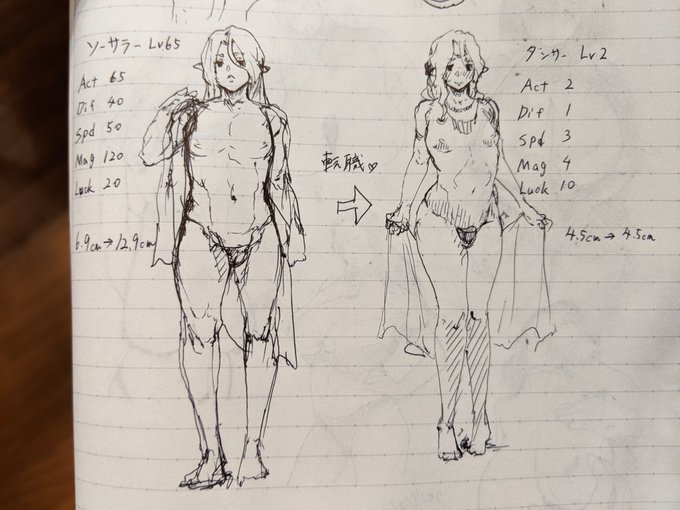 ソーサラー Lv65
Act 65
Dif 40
Spd 50
Mag 120
Luck 20
6.9cm→12.9cm
転職♡
ダンサー Lv2
Act 2
Dif 1
Spd 3
Mag 4
Luck 10
4.5cm→4.5cm